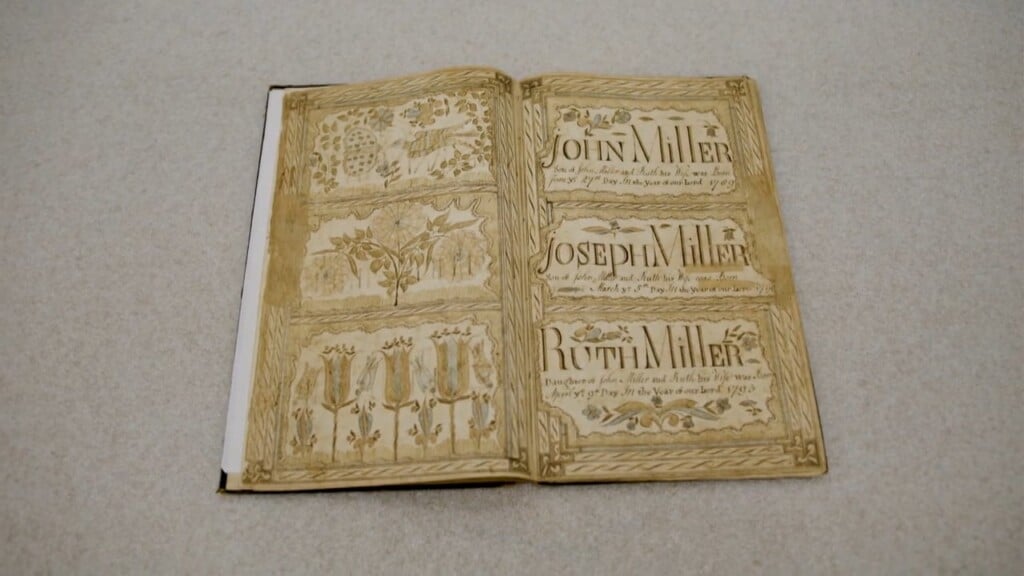 JOHN MillER
Son of John Miller and Ruth his Wife was Born
June ye 27th Day In the Year of our Lord
JOSEPH MillER
Son of John Miller and Ruth his Wife was Born
March ye 5th Day In the Year of our Lord
RUTH MillER
Daughter of John Miller and Ruth his Wife was Born
April ye 9th Day In the Year of our Lord 1793